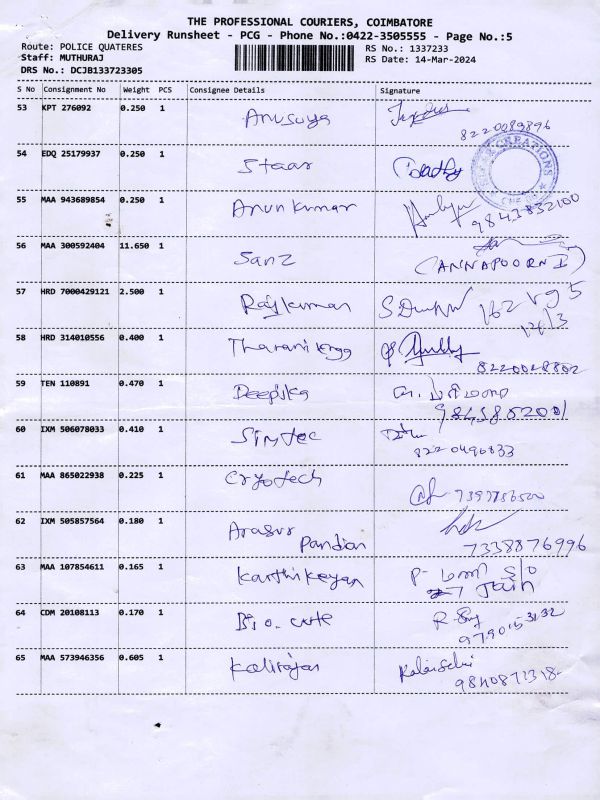 THE PROFESSIONAL COURIERS, COIMBATORE
Delivery Runsheet - PCG - Phone No.:0422-3505555 - Page No.:5
Route: POLICE QUATERES
RS No.: 1337233
Staff: MUTHURAJ
RS Date: 14-Mar-2024
DRS No.: DCJB133723305
S No Consignment No Weight PCS Consignee Details Signature
53 KPT 276092 0.250 1 Anusuya
8220089896
54 EDQ 25179937 0.250 1 Staar
CREATIONS
55 MAA 943689854 0.250 1 Arun kumar
9843832100
56 MAA 300592404 11.650 1 Sanz
(ANNAPOORNI)
57 HRD 7000429121 2.500 1 Rajkumar
58 HRD 314010556 0.400 1 Tharani
8220028802
59 TEN 110891 0.470 1 Deepika
60 IXM 506078033 0.410 1 Simtec
8220496833
61 MAA 865022938 0.225 1 Cryotech
62 IXM 505857564 0.180 1 Arasur Pandian
7338876996
63 MAA 107854611 0.165 1 Karthikeyan
P- S/O
Jain
64 CDM 20108113 0.170 1 Bio. care
65 MAA 573946356 0.605 1 Kalirajan
Kalaiselvi